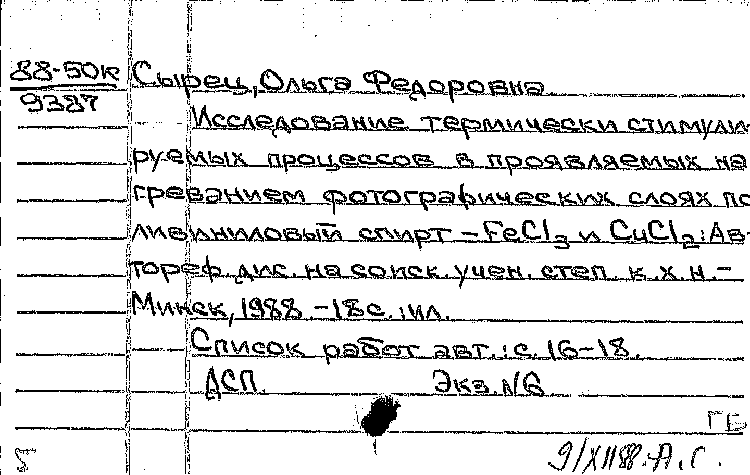 88-50к
9387
Сырец, Ольга Федоровна.
Исследование термически стимули
руемых процессов в проявляемых на
греванием фотографических слоях по
ливиниловый спирт – FeCl3 и CuCl2: Ав-
тореф. дис. на соиск. учен. степ. к.х.н. –
Минск, 1988. – 18 с. : ил.
Список работ авт.: с. 16-18.
ДСП. Экз. №6
ГБ
9/XII88.